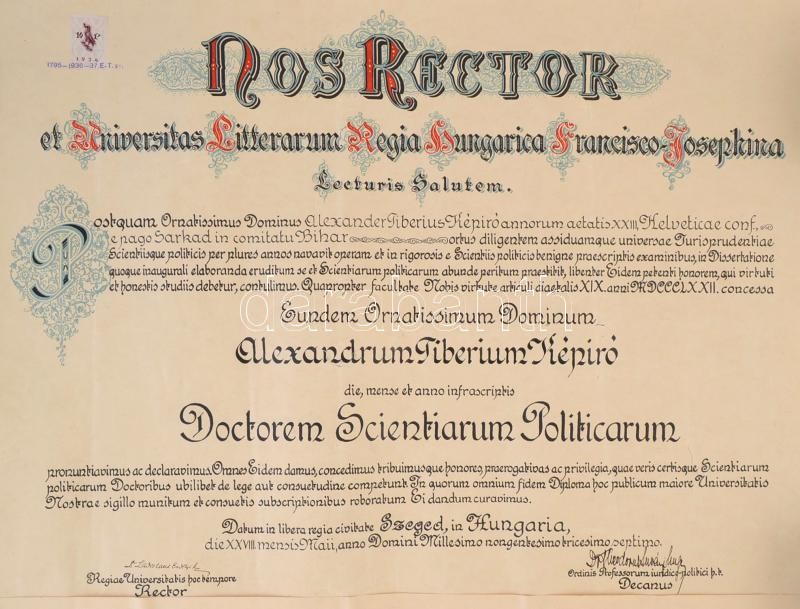 1934
1795-1936-37.E.T.
Nos Rector
et Universitas Litterarum Regia Hungarica Francisco-Josephina
Lecturis Salutem.
Postquam Ornatissimus Dominus Alexander Tiberius Képiró annorum aetatis XXIII, Helveticae conf.,
e pago Sarkad in comitatu Bihar ortus diligentem assiduamque universae Jurisprudentiae
Scientiisque politicis per plures annos navavit operam et in rigorosis e Scientiis politicis benigne praescriptis examinibus, in Dissertatione
quoque inaugurali elaboranda eruditum se et Scientiarum politicarum abunde peritum praestitit, libenter Eidem petenti honorem, qui virtuti
et honestis studiis debetur, contulimus. Quapropter facultate Nobis virtute articuli diaetalis XIX. anni MDCCCLXXII. concessa
Eundem Ornatissimum Dominum
Alexandrum Tiberium Képiró
darabanth
die, mense et anno infrascriptis
Doctorem Scientiarum Politicarum
pronuntiavimus ac declaravimus. Omnes Eidem damus, concedimus tribuimusque honores, praerogativas ac privilegia, quae veris certisque Scientiarum
politicarum Doctoribus ubilibet de lege aut consuetudine competunt. In quorum omnium fidem Diploma hoc publicum maiore Universitatis
Nostrae sigillo munitum et consuetis subscriptionibus roboratum Ei dandum curavimus.
Datum in libera regia civitate Szeged, in Hungaria,
die XXVIII. mensis Maii, anno Domini Millesimo nongentesimo tricesimo septimo.
Regiae Universitatis hoc tempore
Rector
Ordinis Professorum iuridico-politici p.t.
Decanus